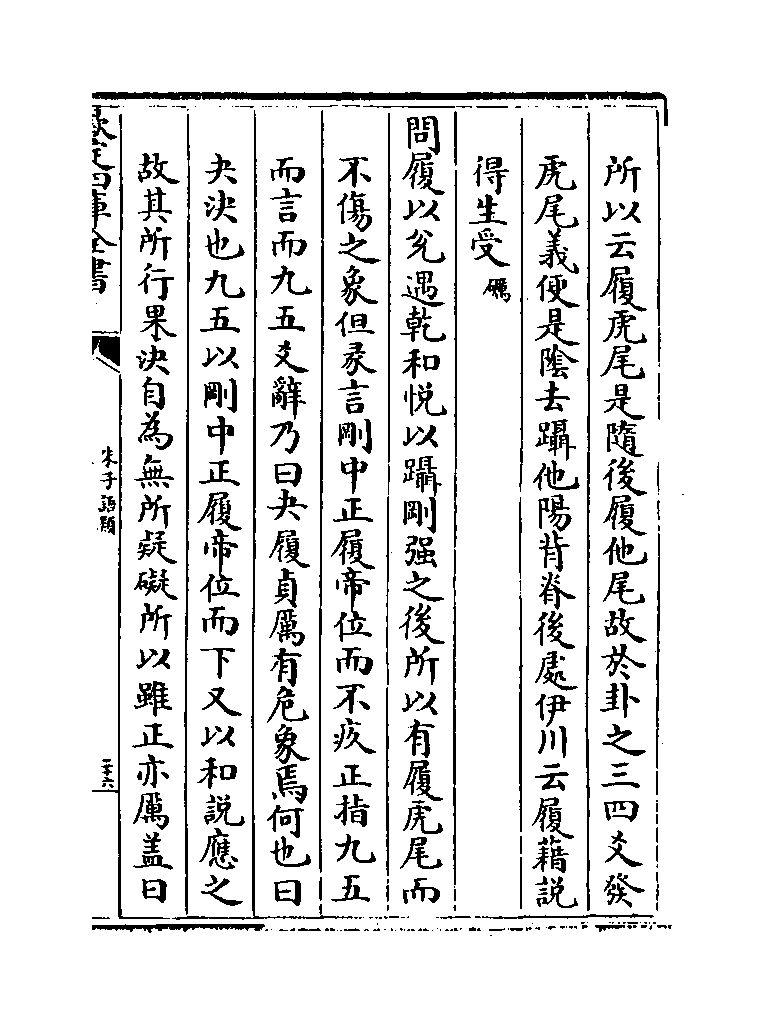 所以云履虎尾是隨後履他尾故於卦之三四爻發
虎尾義便是陰去躡他陽背脊後處伊川云履藉説
得生受礪
問履以兊遇乾和悦以躡剛强之後所以有履虎尾而
不傷之象但彖言剛中正履帝位而不疚正指九五
而言而九五爻辭乃曰夬履貞厲有危象焉何也曰
夬决也九五以剛中正履帝位而下又以和説應之
故其所行果决自為無所疑礙所以雖正亦厲盖曰
欽定四庫全書
朱子語類
二十六